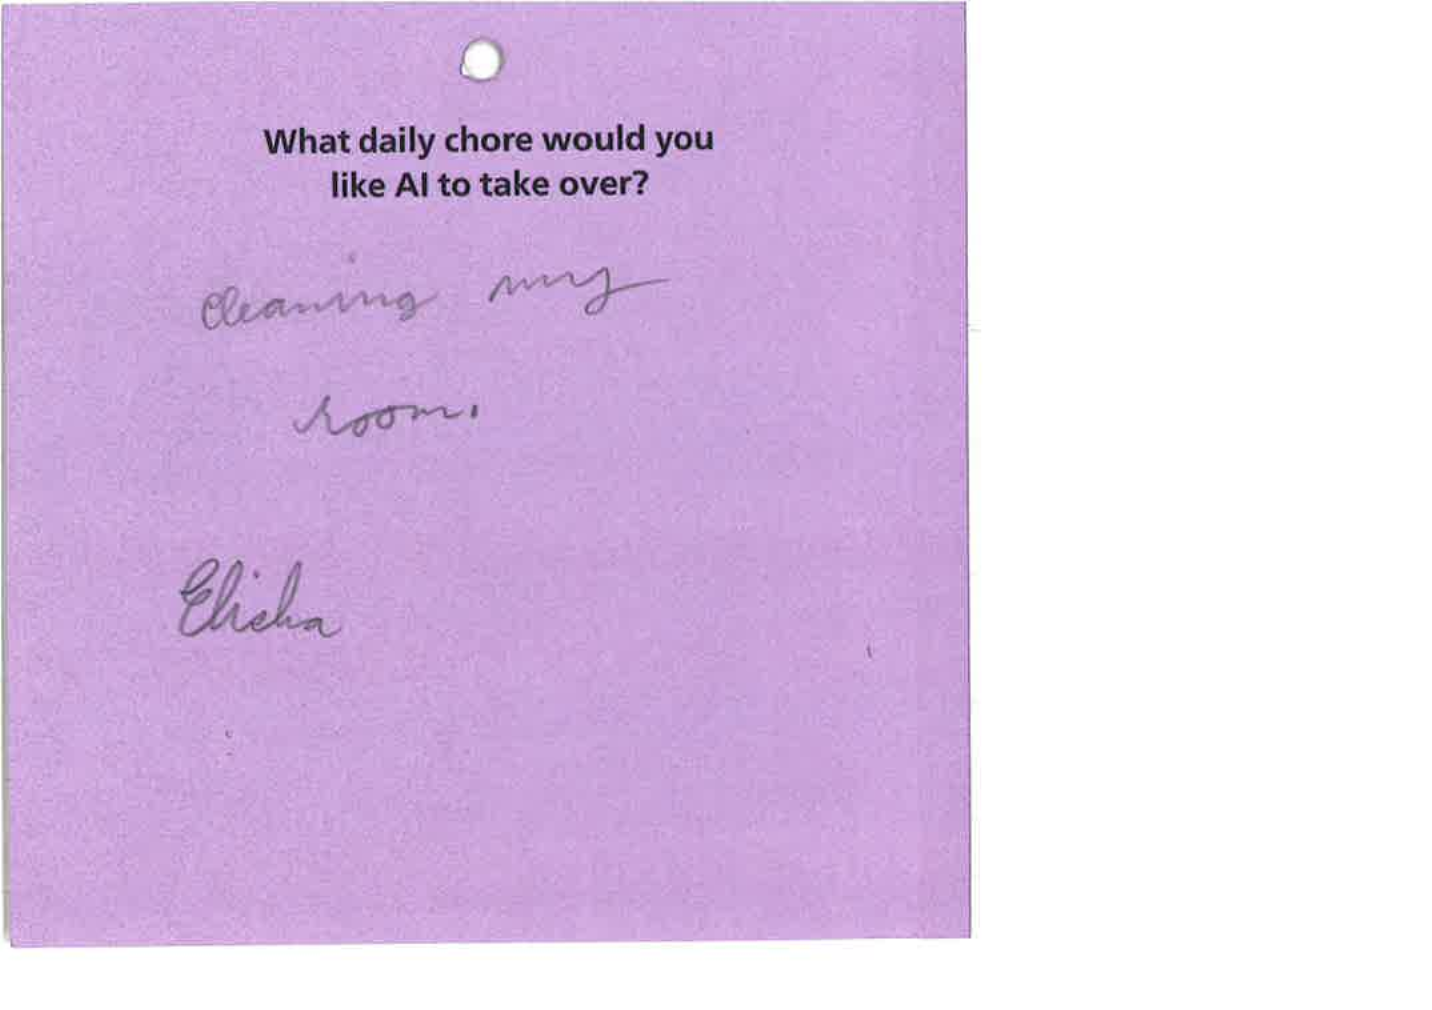 What daily chore would you
like AI to take over?
cleaning my
room.
Elisha